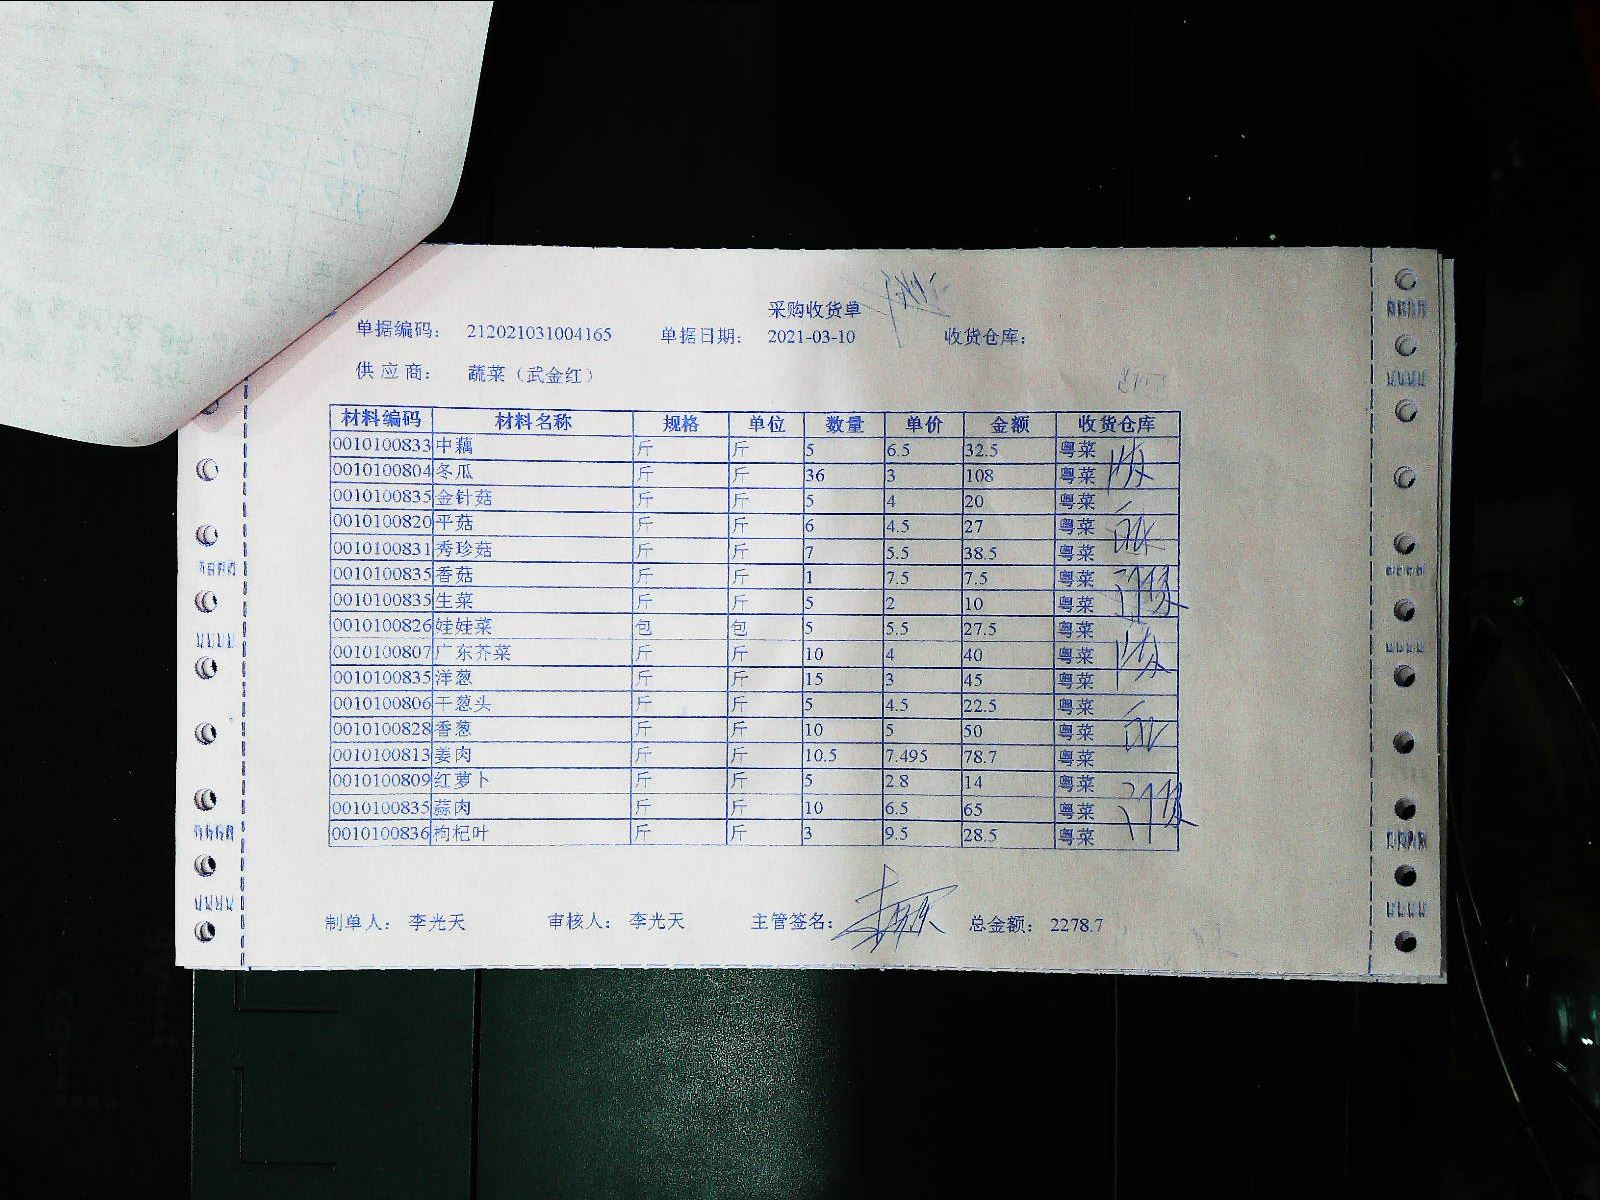 采购收货单
单据编码: 212021031004165 单据日期: 2021-03-10 收货仓库:
供应商: 蔬菜（武金红）
材料编码 材料名称 规格 单位 数量 单价 金额 收货仓库
0010100833 中藕 斤 斤 5 6.5 32.5 粤菜
0010100804 冬瓜 斤 斤 36 3 108 粤菜
0010100835 金针菇 斤 斤 5 4 20 粤菜
0010100820 平菇 斤 斤 6 4.5 27 粤菜
0010100831 秀珍菇 斤 斤 7 5.5 38.5 粤菜
0010100835 香菇 斤 斤 1 7.5 7.5 粤菜
0010100835 生菜 斤 斤 5 2 10 粤菜
0010100826 娃娃菜 包 包 5 5.5 27.5 粤菜
0010100807 广东芥菜 斤 斤 10 4 40 粤菜
0010100835 洋葱 斤 斤 15 3 45 粤菜
0010100806 干葱头 斤 斤 5 4.5 22.5 粤菜
0010100828 香葱 斤 斤 10 5 50 粤菜
0010100813 姜肉 斤 斤 10.5 7.495 78.7 粤菜
0010100809 红萝卜 斤 斤 5 2.8 14 粤菜
0010100835 蒜肉 斤 斤 10 6.5 65 粤菜
0010100836 枸杞叶 斤 斤 3 9.5 28.5 粤菜
制单人: 李光天 审核人: 李光天 主管签名: 总金额: 2278.7